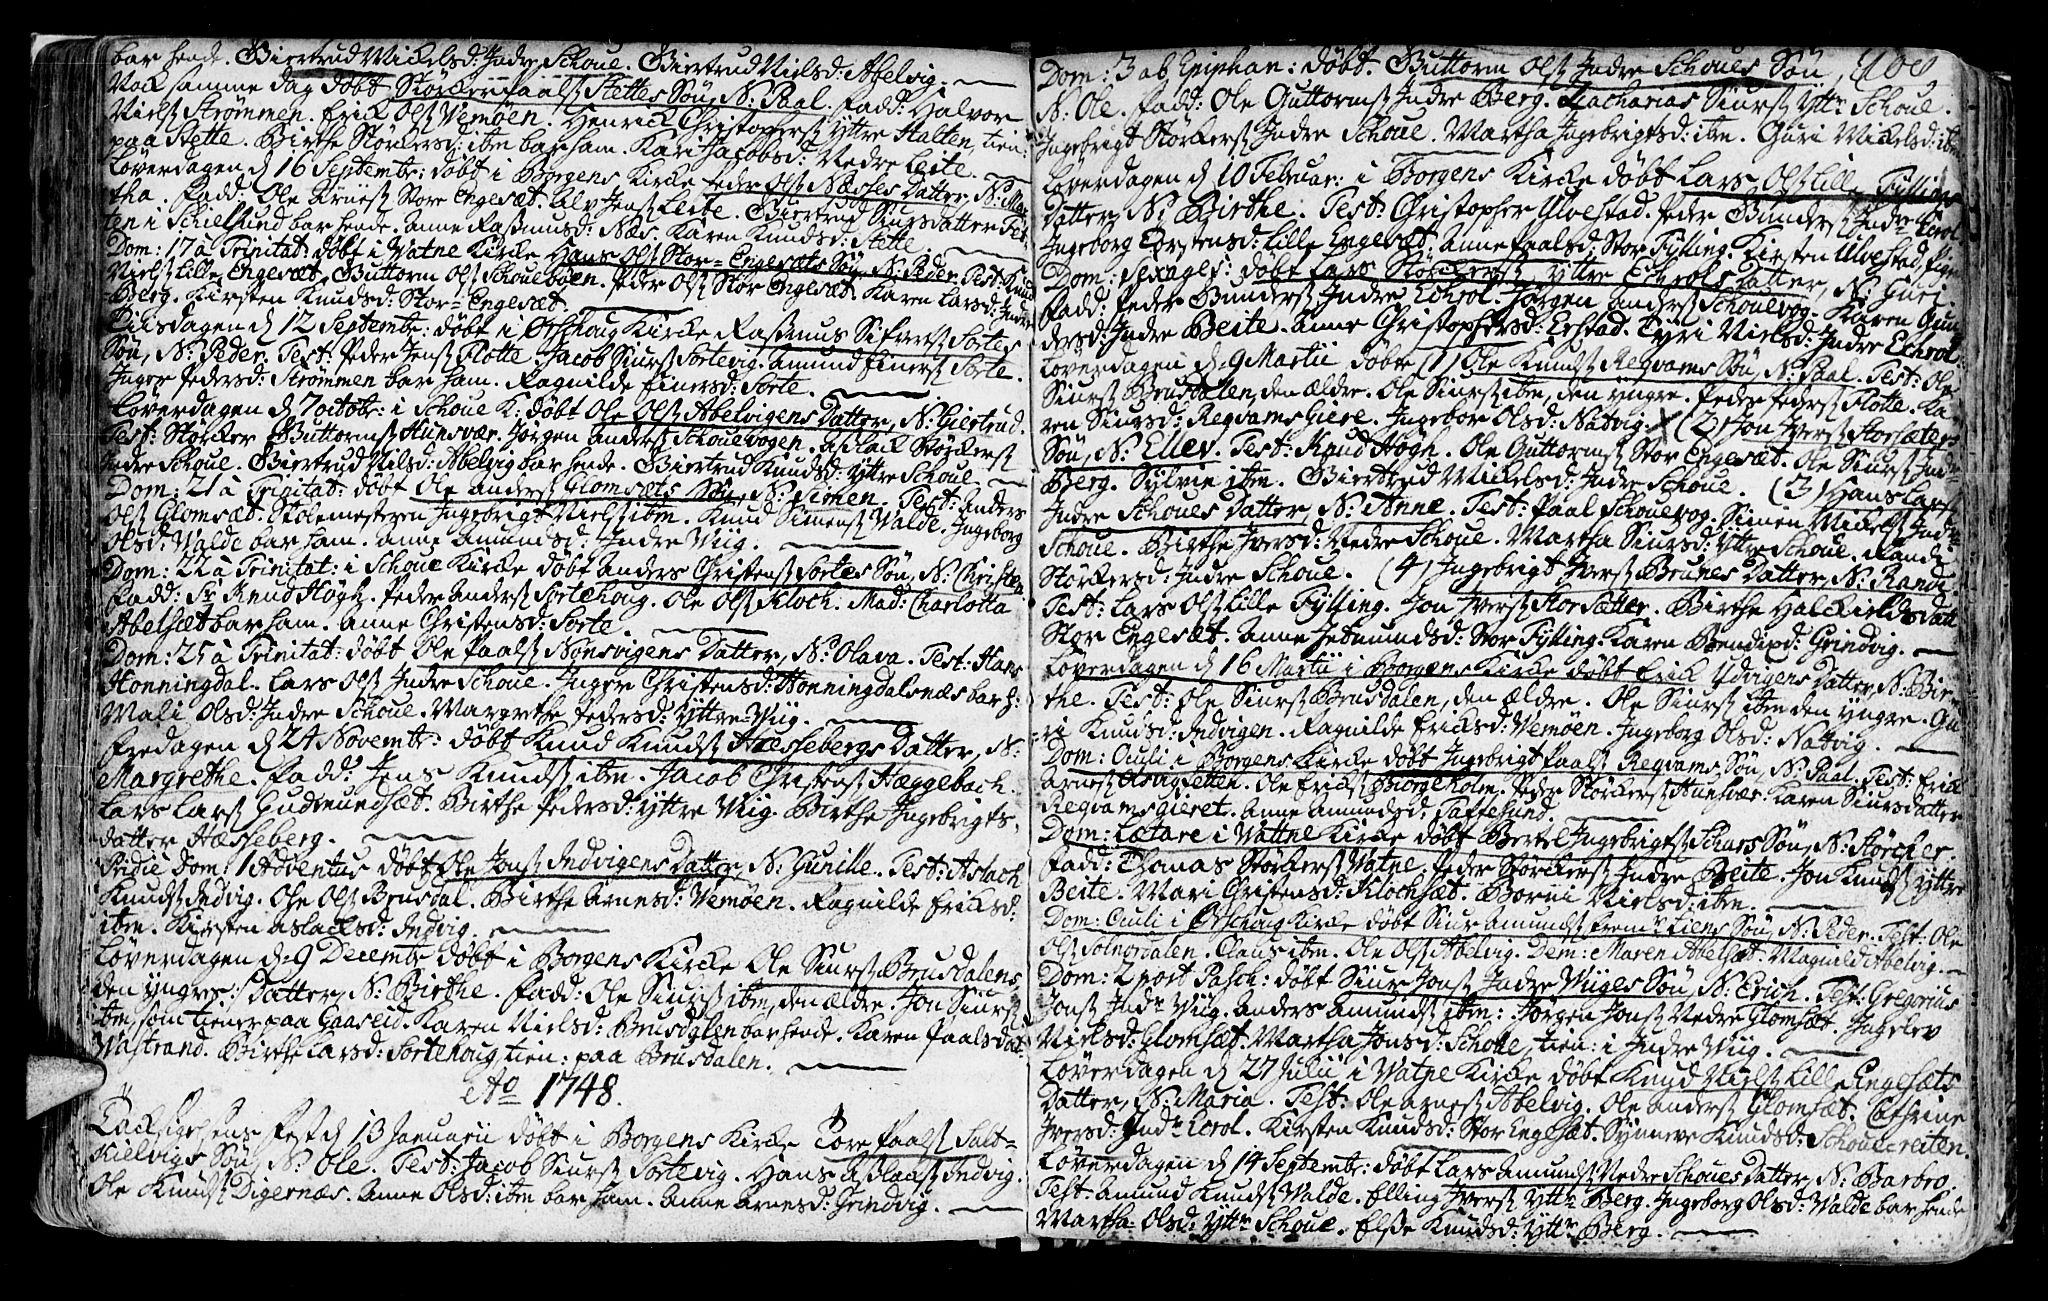 bar hende. Giertrud Mickelsd: Indre Schoue. Giertrud Nielsd: Abelvig.
Nock samme dag døbt Størker Paals Stettes Søn, N: Paal. Fadd: Halvor
Niels Strømmen. Erick Ols Vemøen. Henrick Christophers Yttre Halten, tien:
paa Stette. Birthe Størkersd: ibm bar ham. Kari Jacobsd: Nedre Leite.
Løverdagen d 16 Septembr: døbt i Borgens Kirke Peder Ols Næsses Datter, N: Mar-
tha. Fadd: Ole Knues Stor Engesæt. Alv Jens Leite. Giertrud Siursdatter
ten i Schielsund bar hende. Anne Rasmusd: Næs. Karen Knudsd: Stette.
Dom: 17 à Trinitat: døbt i Vatne Kirke Hans Ols Stor-Engesæts Søn, N: Peder. Test: Knud
Niels Lille Engesæt. Guttorm Ols Schouebøen. Peder Ols Stor Engesæt. Karen Larsd: Indre
Berg. Kirsten Knudsd: Stor-Engesæt.
Tiisdagen d 12 Septembr: døbt i Ørschoug Kirke Rasmus Sifvers Sortes
Søn, N: Peder. Test: Peder Jens Flotte. Jacob Siurs Sortevig. Amund Einers Sorte.
Inger Pedersd: Strømmen bar ham. Ragnilde Einersd: Sorte.
Løverdagen d 7 octobr: i Schoue K: døbt Ole Ols Abelvigens Datter, N: Giertrud.
Test: Størker Guttorms Hunsvær. Jørgen Anders Schouevogen. Aslack Størkers
Indre Schoue. Giertrud Nilsd: Abelvig bar hende. Giertrud Knudsd: Yttre Schoue.
Dom: 21 à Trinitat: døbt Ole Anders Glomsæts Søn, N: Simen. Test: Anders
Ols Glomsæt. Skolemesteren Ingebrigt Niels ibm. Knud Simens Walde. Ingeborg
Olsd: Walde bar ham. Anne Amundsd: Indre Wiig.
Dom: 22 à Trinitat: i Schoue Kirke døbt Anders Christens Sortes Søn, N: Christen
Fadd: Sr Knud Høgh. Peder Anders Sortehoug. Ole Ols Kloch. Mad: Charlotta
Abelsæt bar ham. Anne Christensd: Sorte.
Dom: 25 à Trinitat: døbt Ole Paals Nonsvigens Datter, N: Olava. Test: Hans
Honningdal. Lars Ols Indre Schoue. Inger Christensd: Honningdalsnæs bar h:
Mali Olsd: Indre Schoue. Margrethe Pedersd: Yttre-Wiig.
Fredagen d 24 Novembr: døbt Knud Knuds Hæsseberg's Datter, N:
Margrethe. Fadd: Jens Knuds ibm. Jacob Christens Hæggebach.
Lars Lars Gudmundsæt. Birthe Pedersd: Yttre Wiig. Birthe Ingebrigts-
datter Hæsseberg.
Pridie Dom: 1 Adventus døbt Ole Jons Indvigens Datter, N: Gunille. Test: Aslach
Knuds Indvig. Ole Ols Brusdal. Birthe Arnesd: Vemøen. Ragnilde Ericksd:
ibm. Kirsten Aslacksd: Indvig.
Løverdagen d 9 Decembr døbt i Borgens Kirke Ole Siurs Brusdalens
den yngres Datter, N: Birthe. Fadd: Ole Siurs ibm, den ældre. Jon Siurs
ibm, som tiener paa Gaaseid. Karen Nielsd: Brusdalen bar hende. Karen Paalsdat
Wastrand. Birthe Larsd: Sortehoug tien: paa Brusdalen.
Ao 1748.
Tacksigelsens Fest d 13 Januarii døbt i Borgens Kirke Tore Paals Salt-
Kielvigs Søn, N: Ole. Test: Jacob Siurs Sortevig. Hans Aslaks Indvig.
Ole Knuds Digernæs. Anne Olsd: ibm bar ham. Anne Arnesd: Grindvig.
Dom: 3 ab Epiphan: døbt Guttorm Ols Indre Schoues Søn,
N: Ole. Fadd: Ole Guttorms Indre Berg. Zacharias Siurs Yttr: Schoue.
Ingebrigt Størkers Indre Schoue. Martha Ingebrigtsd: ibm. Guri Mickelsd: ibm
Løverdagen d 10 Februar: i Borgens Kirke døbt Lars Ols Lille Fyllings
Datter, N: Birthe. Test: Christopher Ulvestad. Peder Gunders Indr: Ecrol.
Ingeborg Torstensd: Lille Engesæt. Anne Paalsd: Stor Fylling. Kirsten Ulvestad, Pige
Dom: Sexages: døbt Lars Størkers Yttre Echrols Datter, N: Guri.
Fadd: Peder Gunders Indre Echrol. Jørgen Anders Schouevog. Karen Gun-
dersd: Indre Beite. Anne Christophersd: Erstad. Tyri Nielsd: Indre Echrol.
Løverdagen d 9 Martii døbt (1) Ole Knuds Reqvams Søn, N: Paal. Test: Ole
Siurs Brusdalen, den ældre. Ole Siurs ibm, den yngre. Peder Peders Flotte. Ka-
ren Siursd: Reqvams Giere. Ingebor Olsd: Natvig. (2) Jon Ivers Storsæters
Søn, N: Ellev. Test: Knud Høgn. Ole Guttorms Stor Engesæt. Ole Siurs Indr:
Berg. Sylvie ibm. Giertrud Mickelsd: Indre Schoue. (3) Hans Lars
Indre Schoues Datter, N: Anne. Test: Paal Schouevog. Simen Mickels Indr:
Schoue. Birthe Iversd: Nedre Schoue. Martha Siursd: Yttre Schoue. Randi
Størkersd: Indre Schoue. (4) Ingebrigt Ivers Brunes Datter, N: Randi
Test: Lars Ols Lille Fylling. Jon Ivers Stor Sætter. Birthe Halckieldsdatt
Stor Engesæt. Anne Jetmundsd: Stor Fylling. Karen Bendixd: Grindvig.
Løverdagen d 16 Martii i Borgens Kirke døbt Erick Ydvigens Datter, N: Bir-
the. Test: Ole Siurs Brusdalen, den ældre. Ole Siurs ibm den yngre. Gu-
ri Knudsd: Indvigen. Ragnilde Ericksd: Vemøen. Ingeborg Olsd: Nattvig.
Dom: Oculi i Borgens Kirke døbt Ingebrigt Paals Reqvams Søn, N: Paal. Test: Erick
Arnes Elvigsetten. Ole Ericks Borgeholm. Peder Størkers Hunsvær. Karen Siursdatter
Reqvamsgieret. Anne Amundsd: Taftesund.
Dom: Lætare i Vattne Kirke døbt Bertel Ingebrigts Schars Søn, N: Størcker.
Fadd: Thomas Størkers Vatne. Peder Størkers Indre Beite. Jon Knuds Yttre
Beite. Mari Christensd: Klochsæt. Borni Nielsd: ibm.
Dom: Oculi i Ørschoug Kirke døbt Siur Amunds Frem: Liens Søn, N: Peder. Test: Ole
Ols Solnørdalen. Claus ibm. Ole Ols Abelvig. Dem: Maren Abelsæt. Magnild Abelvig.
Dom: 2 post Pasch: døbt Siur Jons Indre Wiiges Søn, N: Erich. Test: Gregorius
Jons Indr: Wiig. Anders Amunds ibm: Jørgen Jons Nedre Glomsæt. Ingelev
Nielsd: Glomsæt. Martha Jonsd: Schoue, tien: i Indre Wiig.
Løverdagen d 27 Julii i Vatne Kirke døbt Knud Niels Lille Engesæts
Datter, N: Maria. Test: Ole Arnes Abelvig. Ole Anders Glomsæt. Cathrine
Iversd: Indr: Ecrol. Kirsten Knudsd: Stor Engesæt. Synneve Knudsd: Schouereiten.
Løverdagen d 14 Septembr: døbt Lars Amunds Nedre Schoues Datter, N: Barbro.
Test: Amund Knuds Walde. Elling Ivers Yttr: Berg. Ingeborg Olsd: Walde bar hende
Martha Olsd: Yttr: Schoue. Else Knudsd: Yttr: Berg.